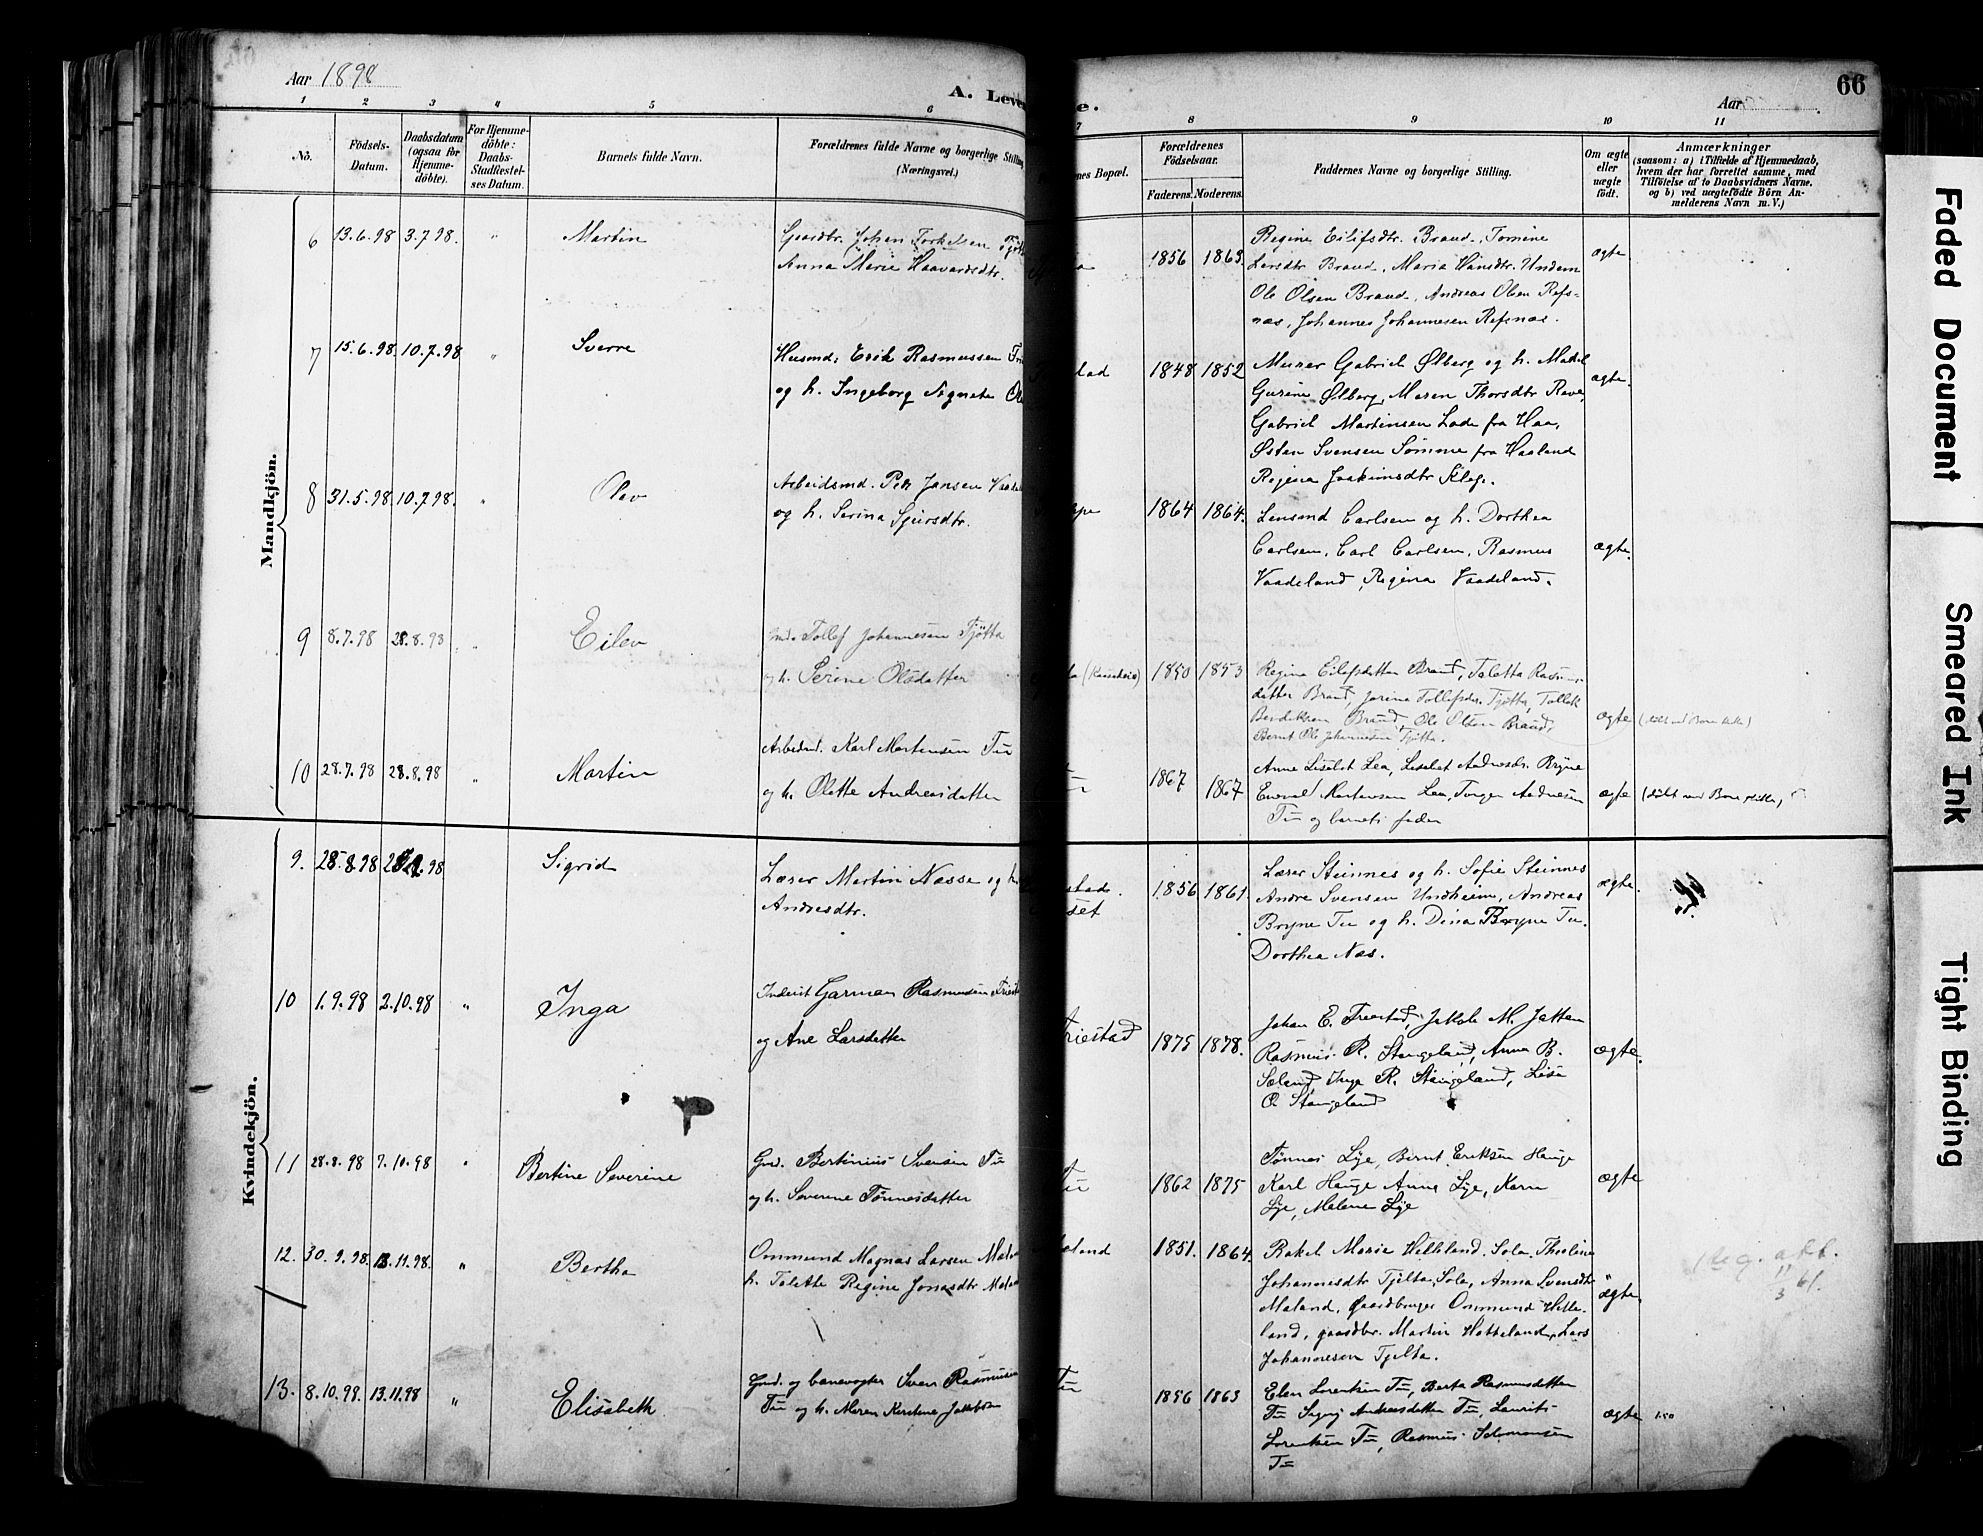 Aar 1898
A. Leve
e.
Aar
66
1 2 3 4 5 6 7 8 9 10 11
No.
Födsels-
Datum.
Daabsdatum
(ogsaa for
Hjemme-
döbte).
For Hjemme-
döbte:
Daabs-
Stadfæstel-
ses Datum.
Barnets fulde Navn.
Forældrenes fulde Navne og borgerlige Stilling
(Næringsvei.)
nes Bopæl.
Forældrenes
Födselsaar.
Faderens. Moderens.
Faddernes Navne og borgerlige Stilling.
Om ægte
eller
uægte
födt.
Anmærkninger
(saasom: a) i Tilfælde af Hjemmedaab,
hvem der har forrettet samme, med
Tilföielse af to Daabsvidners Navne,
og b) ved uægtefödte Börn An-
melderens Navn m. V.)
Mandkjön.
6 13.6.98 3.7.98. " Martin
Gaardbr. Johan Torkelsen Tjøt
Anna Marie Haavardsdtr.
a 1856 1863.
Regine Eilifsdtr. Braud, Tomine
Larsdtr Braud, Maria Hansdtr. Undem
Ole Olsen Braud, Andreas Olsen Refs-
næs, Johannes Johannesen Refsnæs.
ægte
7 15.6.98. 10.7.98 " Sverre
Husmd. Erik Rasmussen
og h. Ingeborg Signete
stad 1848 1852
Murer Gabriel Ølberg og h. Malel
Gurine Ølberg, Maren Thorsdtr Ræve,
Gabriel Martinsen Lode fra Haa,
Østen Svensen Sømme fra Haaland
Regina Joakimsdtr Klep.
ægte.
8 31.5.98 10.7.98. " Olav
Arbeidsmd. Peder Jansen
og h. Serina Sjursdtr.
1864 1864.
Lensmd Carlsen og h. Dorthea
Carlsen, Carl Carlsen, Rasmus
Vaadeland, Regina Vaadeland.
ægte.
9 8.7.98 28.8.98 " Eilev
Gmd. Tollef Johannesen Tjøtta
og h. Serine Olsdatter
1850 1853
Regina Eilefsdatter Braud, Taletta Rasm-
datter Braud, Jorine Tollefsdtr. Tjøtta, Tollef
Bendiksen Braud, Ole Olsen Braud,
Bernt Ole Johannesen Tjøtta.
ægte
10 28.7.98 28.8.98 " Martin
Arbeidsmd. Karl Martensen Tu
og h. Olette Andreasdatter
1867 1867
Anne Liselet Lea, Liselet Aadnesdtr. Bryne
Enevald Martensen Lea, Torger Aadnesen
Tu og barnets fader
ægte
Kvindekjön.
9. 25.8.98 98 Sigrid
Lærer Martin Næsse og h.
Andresdtr.
stad.
set
1856 1861.
Lærer Steinnes og h. Sofie Steinnes
Andre Svensen Undheim, Andreas
Bryne Tu og h. Dina Bryne Tu.
Dorthea Næs.
ægte.
10 1.9.98 2.10.98 " Inga
Inderst Garman Rasmussen Friest
og Ane Larsdatter
Friestad 1875 1878.
Johan E. Friestad, Jakob M. Jatten
Rasmus R. Stangeland, Anna B.
Soland, Inga R. Stangeland, Lisa
O. Stangeland
ægte.
11 28.8.98 7.10.98 " Bertine Severine
Gmd. Bertinius Svensen Tu
og h. Severine Tønnesdatter
Tu 1862 1875
Tønnes Lye, Bernt Eriksen Hauge
Karl Hauge Anna Lye, Karn
Lye, Malene Lye
ægte
12. 30.9.98. 13.11.98. " Bertha
Ommund Magnas Larsen Mala
h. Talette Regine Jonasdtr Mala
aland 1851. 1864.
Rakel Marie Helleland Sola, Theoline
Johannesdtr Tjelta, Sola, Anna Svensdtr
Maland, Gaardbruger Ommund Helle-
land, gaardbr. Martin Hatteland, Lars
Johannesen Tjelta.
ægte.
Reg. att.
11/3 61.
13. 8.10.98. 13.11.98 " Elisabeth
Gmd. og banevogter Sven Rasmussen
Tu og h. Maren Kirstine Jakobsd
Tu 1856 1863
Elen Lorentsen Tu, Berta Rasmusdatter
Tu Signy Andreasdatter Tu, Laurits
Lorentsen Tu, Rasmus Salomonsen
Tu
ægte
Faded Document
Smeared Ink
Tight Binding